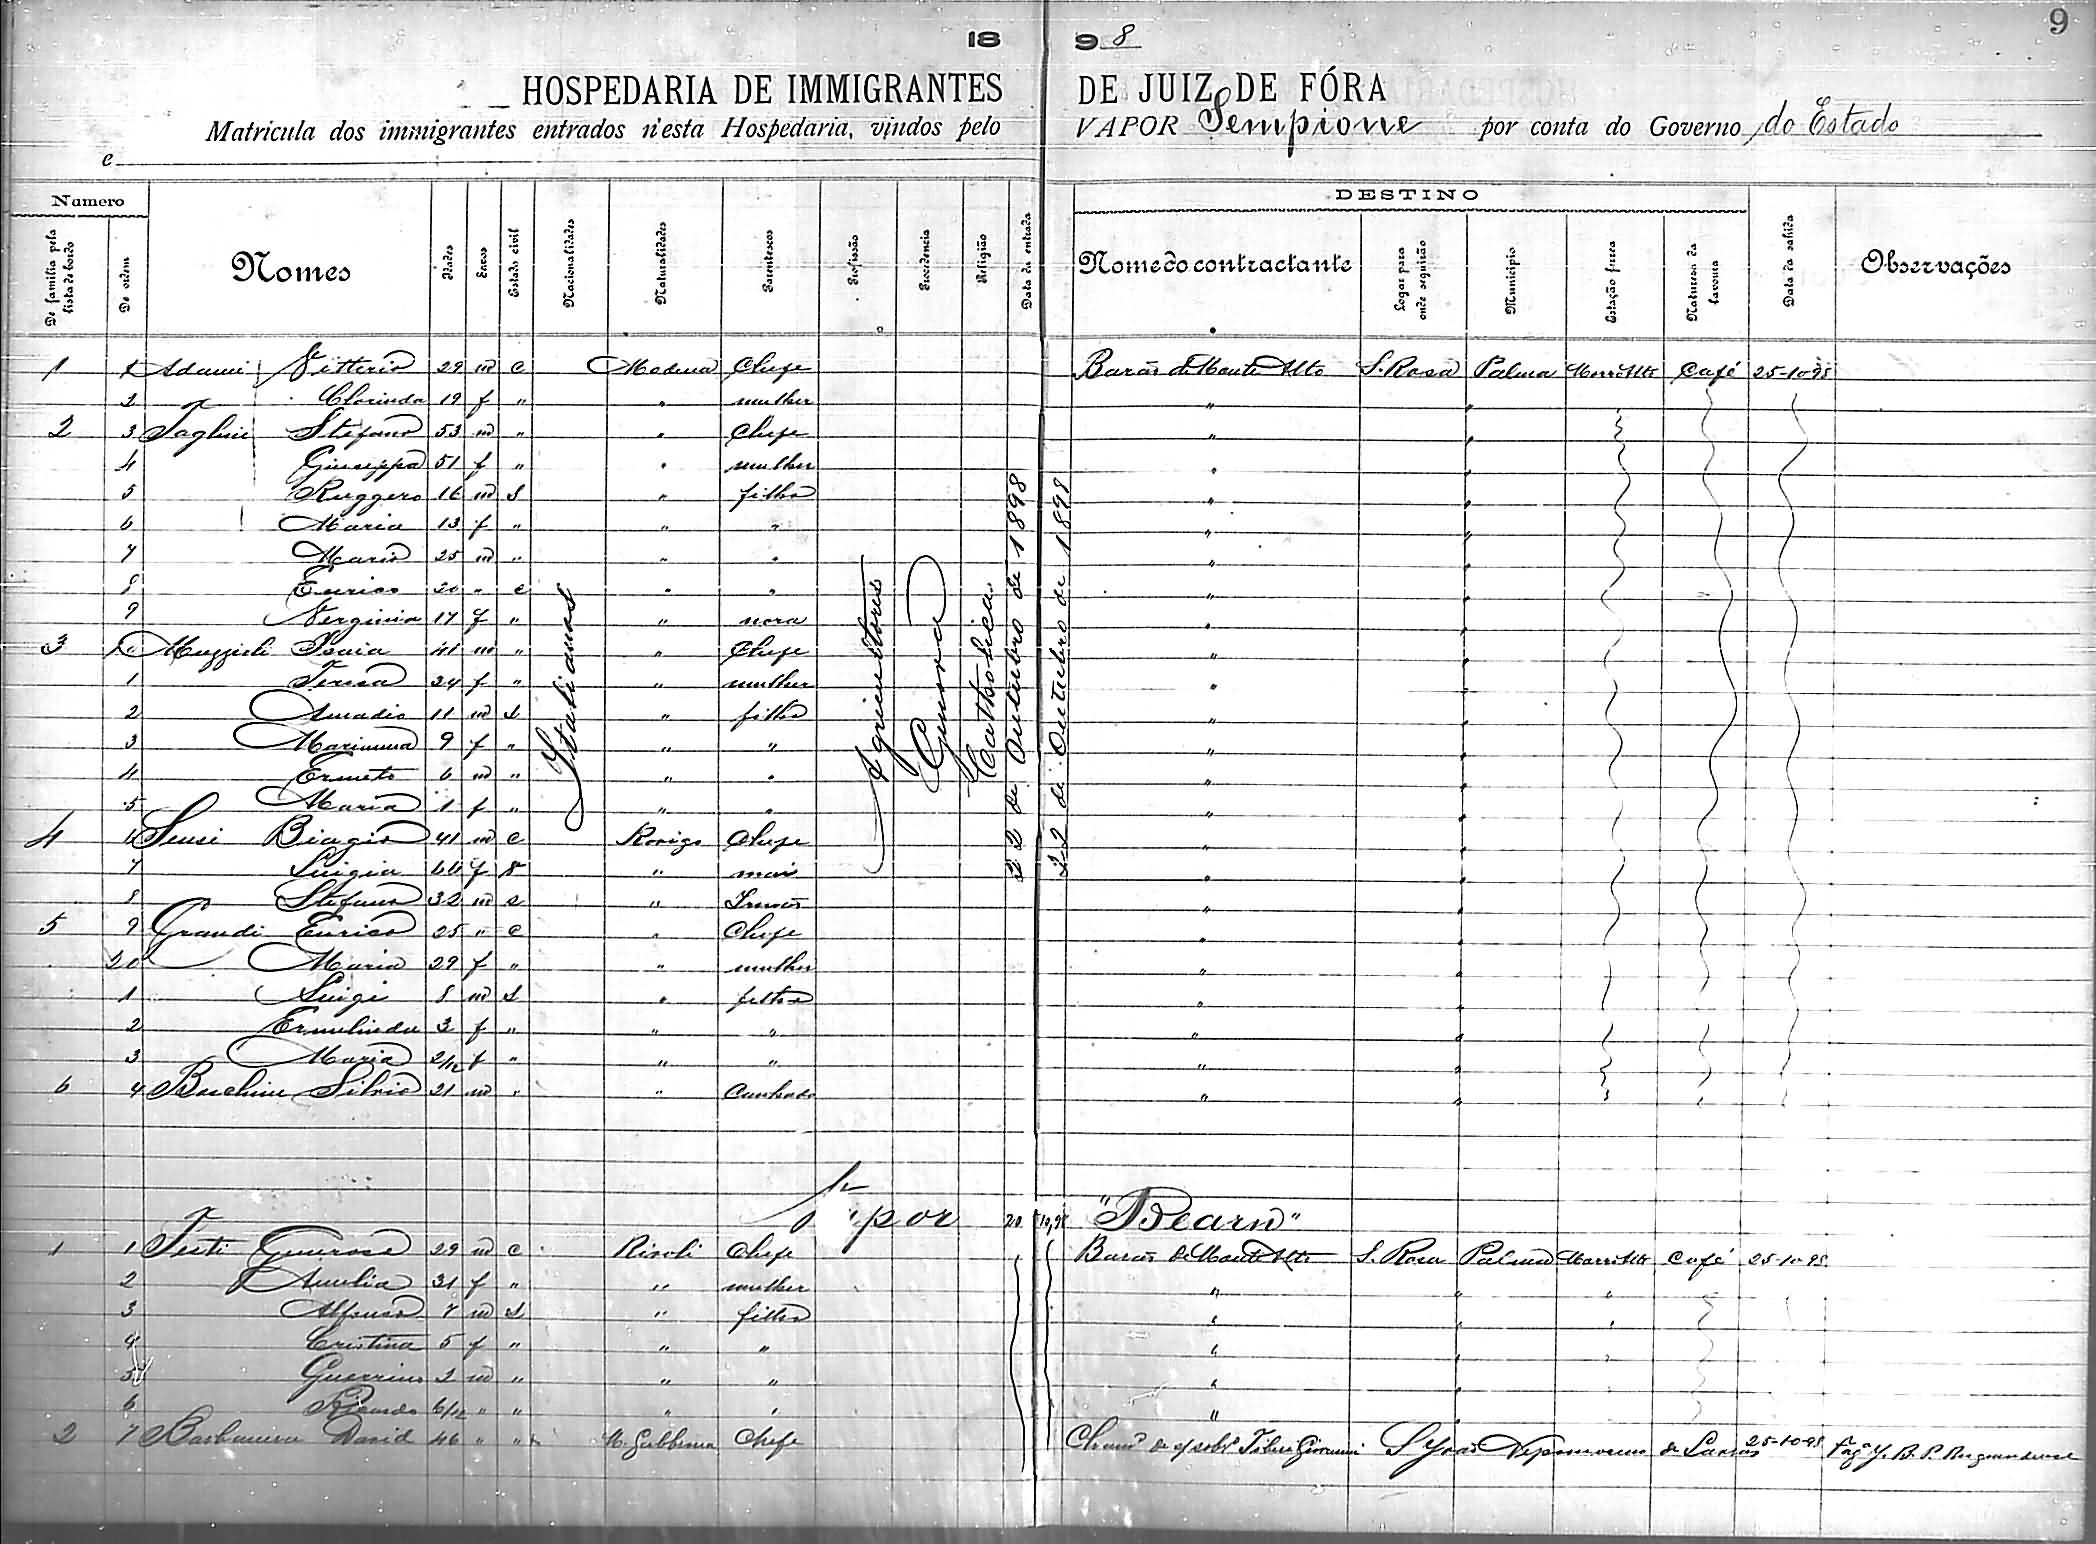 9
18 98
HOSPEDARIA DE IMMIGRANTES DE JUIZ DE FÓRA
Matricula dos immigrantes entrados n'esta Hospedaria, vindos pelo VAPOR Sempione por conta do Governo do Estado
e
Numero DESTINO
De familia pela lista de bordo De ordem Nomes Idades Sexos Estado civil Nacionalidades Naturalidades Parentescos Profissão Procedencia Religião Data da entrada Nome do contractante Logar para onde seguirão Municipio Estação ferrea Natureza da lavoura Data da sahida Observações
1 1 Adami Vittorio 29 m c Modena Chefe Barão de Monte Alto S. Rosa Palma Morro Alto Café 25-10-98
2 Clorinda 19 f " " mulher " "
2 3 Taglini Stefano 53 m " " Chefe " "
4 Giuseppa 51 f " " mulher " "
5 Ruggero 16 m s " filho " "
6 Maria 13 f " " " " "
7 Mario 25 m " " " " "
8 Enrico 20 " c " " " "
9 Verginia 17 f " " nora " "
3 10 Isaia 41 m " " Chefe " "
1 Teresa 34 f " " mulher " "
2 Amadio 11 m s " filho " "
3 9 f " " " " "
4 Ermete 6 m " " " " "
5 Maria 1 f " " " " "
Italianos
Agricultores
Genova
Catholica
22 de Outubro de 1898
22 de Outubro de 1898
4 Biagio 41 m c Rovigo Chefe "
7 Luigia f " mãi " "
8 Stefano 32 m s " Irmão " "
5 9 Grandi Enrico 25 " c " Chefe " "
20 Maria 29 f " " mulher " "
1 Luigi 8 m s " filho " "
2 Ermelinda 3 f " " " " "
3 Maria 2/12 f " " " " "
6 4 Silvio 21 m " " Cunhado " "
Vapor 20 10,98 "Bearn"
1 1 Testi Generoso 29 m c Chefe Barão de Monte Alto S. Rosa Palma Morro Alto Café 25-10-98
2 Amelia 31 f " " mulher " " "
3 Alfonso 7 m s " filho " " "
4 Cristina 5 f " " " " " "
5 Guerrino 3 m " " " " "
6 Ricardo 6/12 " " " " " "
2 7 David 46 " " Chefe Giovanni S João Nepomuceno 25-10-98